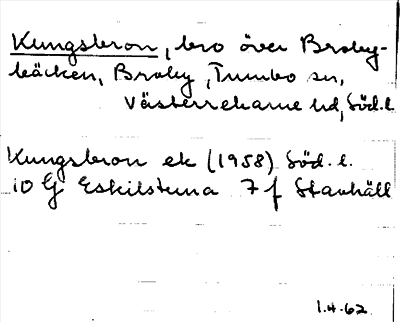 Kungsbron, bro över Broby-
bäcken, Broby, Tumbo sn,
Västerrekarne hd, Söd. l.
Kungsbron ek (1958) Söd. l.
10 G Eskilstuna 7 f Stavhäll
1.4.62